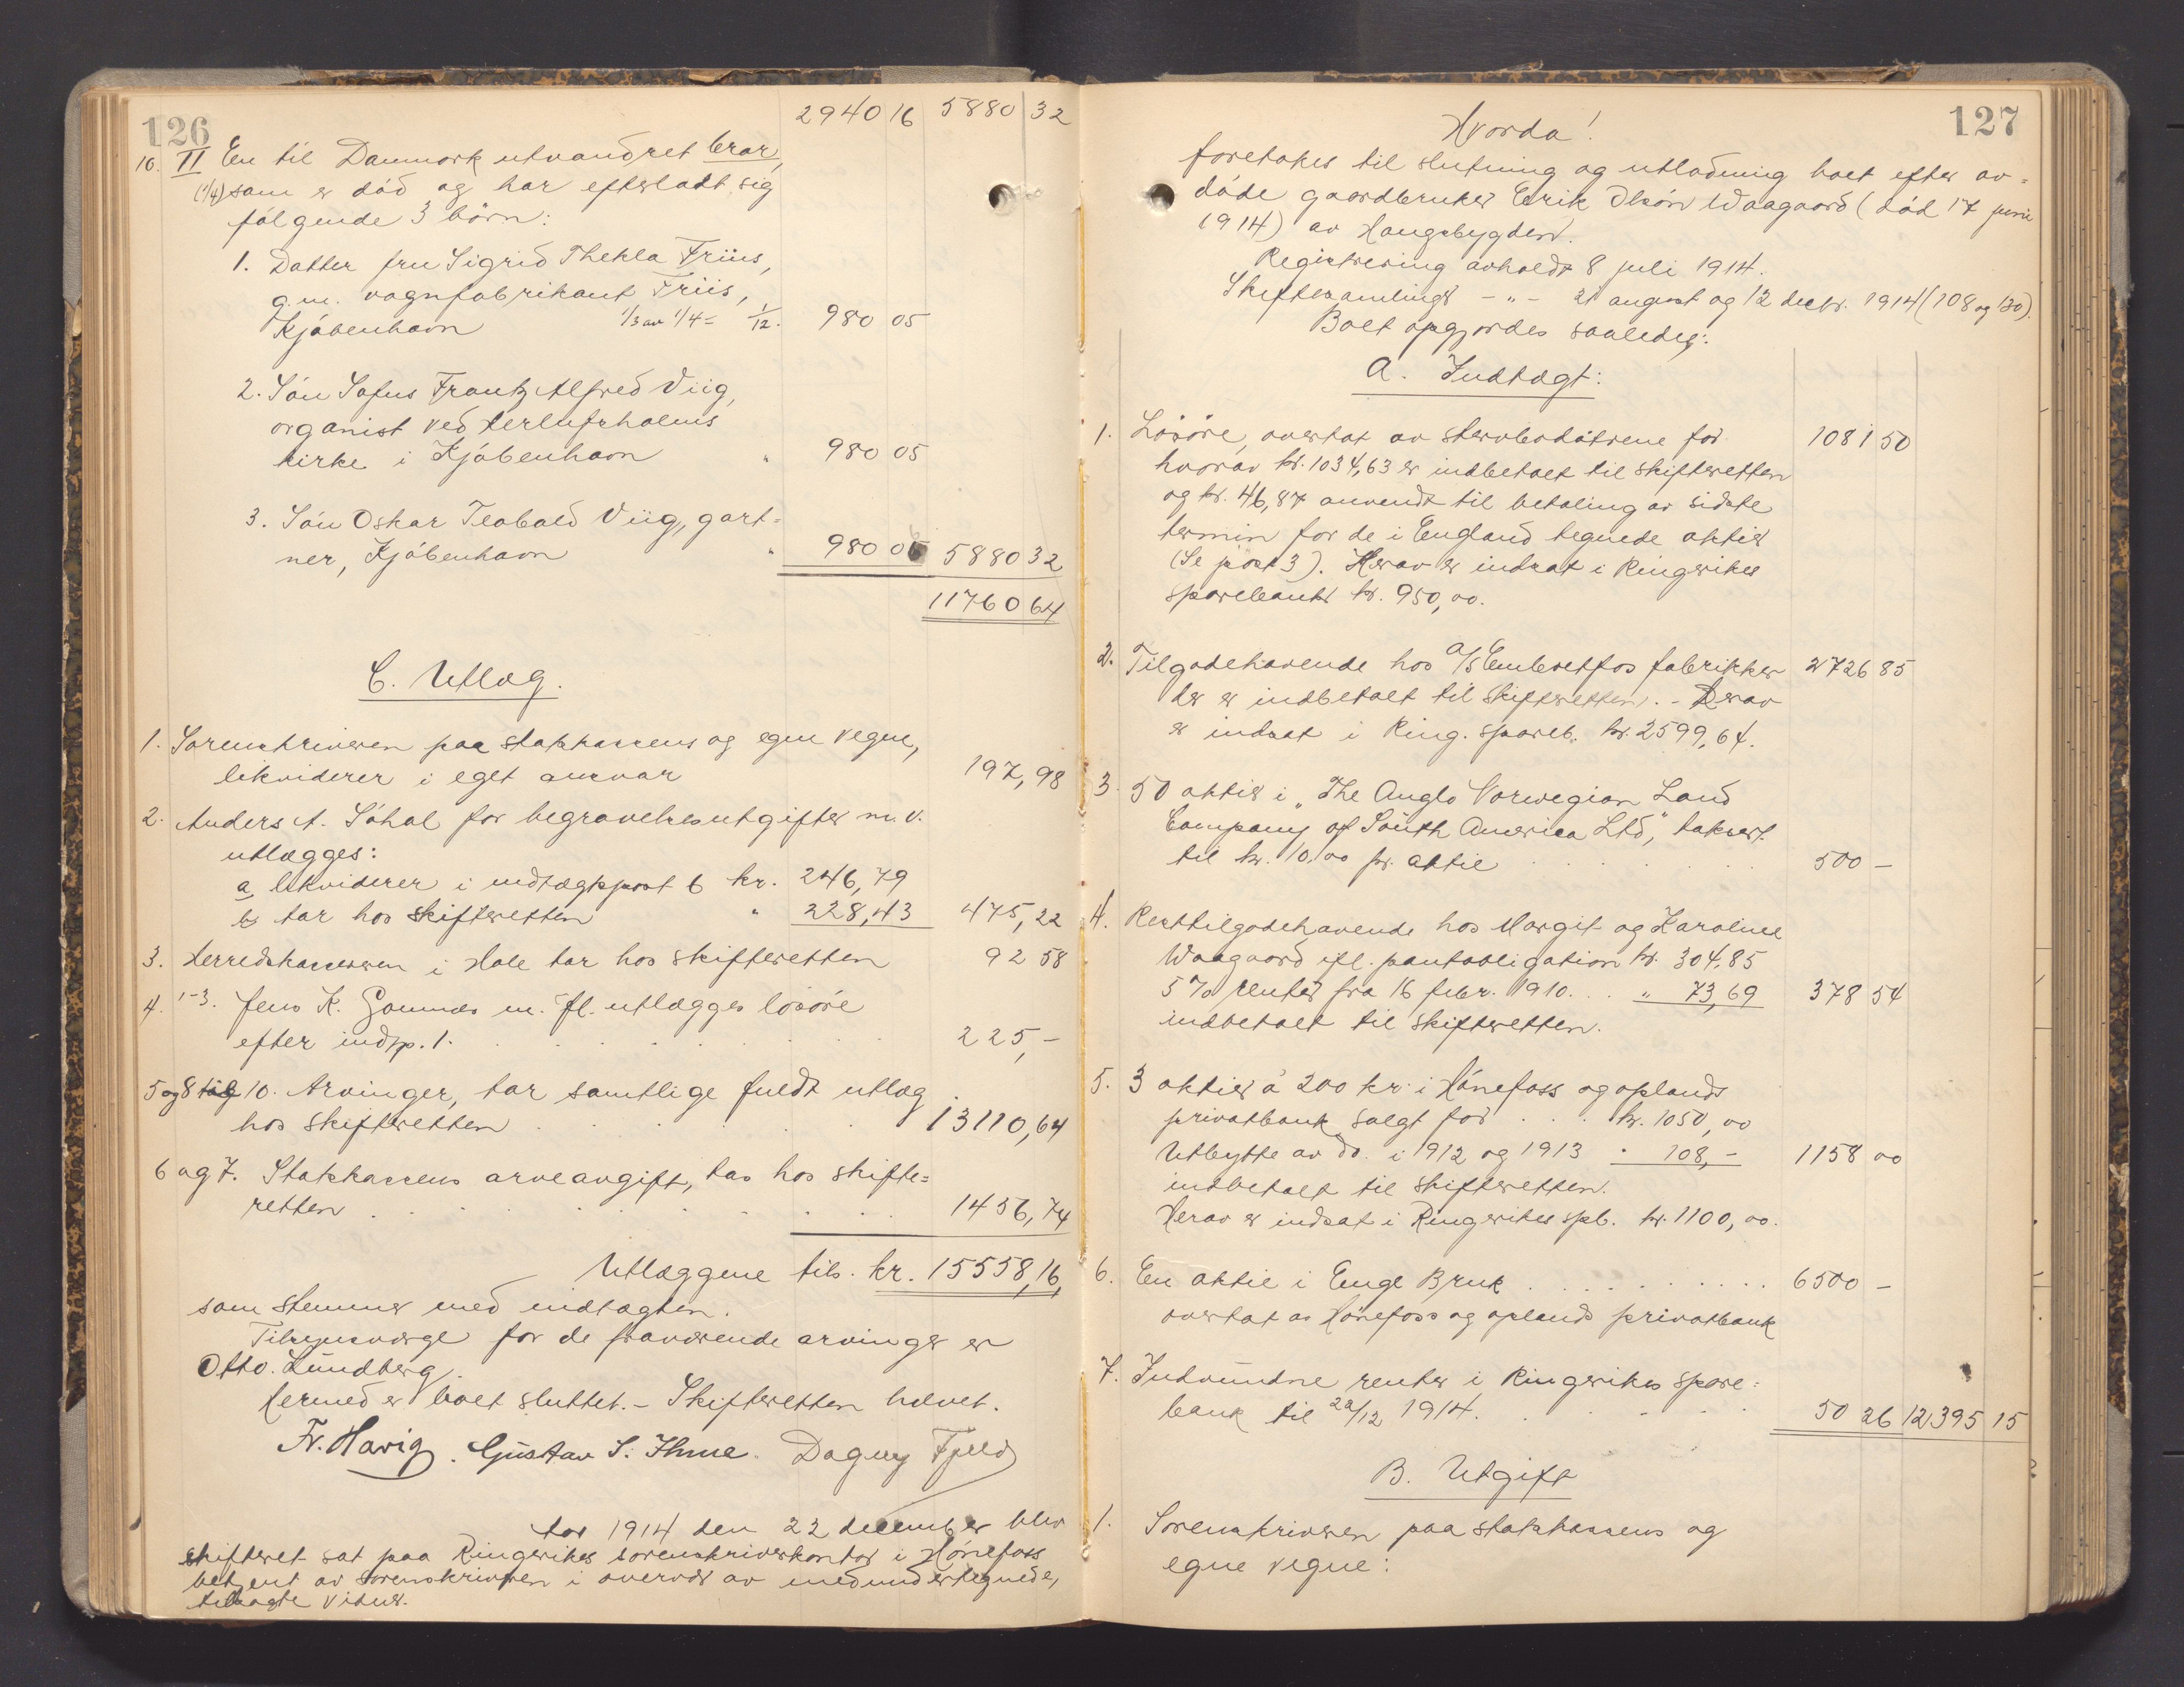 126
2940 16 5880 32
10. II En til Danmark utvandret bror,
(1/4) som er død og har efterladt sig
følgende 3 börn:
1. Datter fru Sigrid Thekla Friis,
g.m. vognfabrikant Friis,
Kjøbenhavn 1/3 av 1/4 = 1/12. 980 05
2. Søn Sofus Frantz Alfred Viig,
organist ved Herlufsholms
kirke i Kjøbenhavn " 980 05
3. Søn Oskar Teobald Viig, gart=
ner, Kjøbenhavn " 980 06 5880 32
11760 64
C. Utlæg.
1. Sorenskriveren paa statskassens og egne vegne,
likviderer i eget ansvar 197,98
2. Anders A. Søhol for begravelsesutgifter m.v.
utlægges:
a, likviderer i indtægtspost 6 kr. 246,79
b, tar hos skifteretten " 228,43 475,22
3. Herredskassereren i Hole tar hos skifteretten 92 58
4. 1-3. Jens K. Gomnæs m. fl. utlægges løsøre
efter indtp. 1. 225,-
5 og 8 til 10. Arvinger, tar samtlige fuldt utlæg
hos skifteretten 13110,64
6 og 7. Statskassens arveavgift, tas hos skifte=
retten 1456,74
Utlæggene tils. kr. 15558,16,
som stemmer med indtægten.
Tilsynsværge for de fraværende arvinger er
Otto. Lundberg.
Hermed er boet sluttet. - Skifteretten hævet.
Fr. Harig. Gustav S. Ihme. Dagny Fjeld
Aar 1914 den 22 december blev
skifteret sat paa Ringerikes sorenskriverkontor i Hønefoss
betjent av sorenskriveren i overvær av medundertegnede,
tilkaldte vitner.
127
Hvorda!
foretokes til slutning og utlodning boet efter av=
døde gaardbruker Erik Olsøn Waagaard (død 17 juni
1914) av Haugsbygden.
Registrering avholdt 8 juli 1914.
Skiftesamlinger - " - 21 august og 12 decbr. 1914 (108 og 120).
Boet opgjordes saaledes:
A. Indtægt:
1. Løsøre, overtat av stervbodøtrene for 1081 50
hvorav kr. 1034,63 er indbetalt til skifteretten
og kr. 46,87 anvendt til betaling av sidste
termin for de i England tegnede aktier
(Se post 3). Herav er indsat i Ringerikes
sparebank kr. 950,00.
2. Tilgodehavende hos A/S Embretfos fabrikker 2726 85
der er indbetalt til skifteretten. - Derav
er indsat i Ring. spareb. kr. 2599,64.
3. 50 aktier i "The Anglo Norwegian Land
Company of South America Ltd", takseret
til kr. 10,00 pr. aktie 500 -
4. Resttilgodehavende hos Margit og Karoline
Waagaard ifl. pantobligation kr. 304,85
5 % renter fra 16 febr. 1910 . . " 73,69 378 54
indbetalt til skifteretten.
5. 3 aktier á 200 kr. i Hønefoss og oplands
privatbank solgt for . . . kr. 1050,00
Utbytte av do. i 1912 og 1913 " 108,- 1158 00
indbetalt til skifteretten.
Herav er indsat i Ringerikes spb. kr. 1100,00.
6. En aktie i Enge Bruk . . . . 6500 -
overtat av Hönefoss og oplands privatbank
7. Indvundne renter i Ringerikes spare=
bank til 22/12 1914. 50 26 12,395 15
B. Utgift
1. Sorenskriveren paa statskassens og
egne vegne: